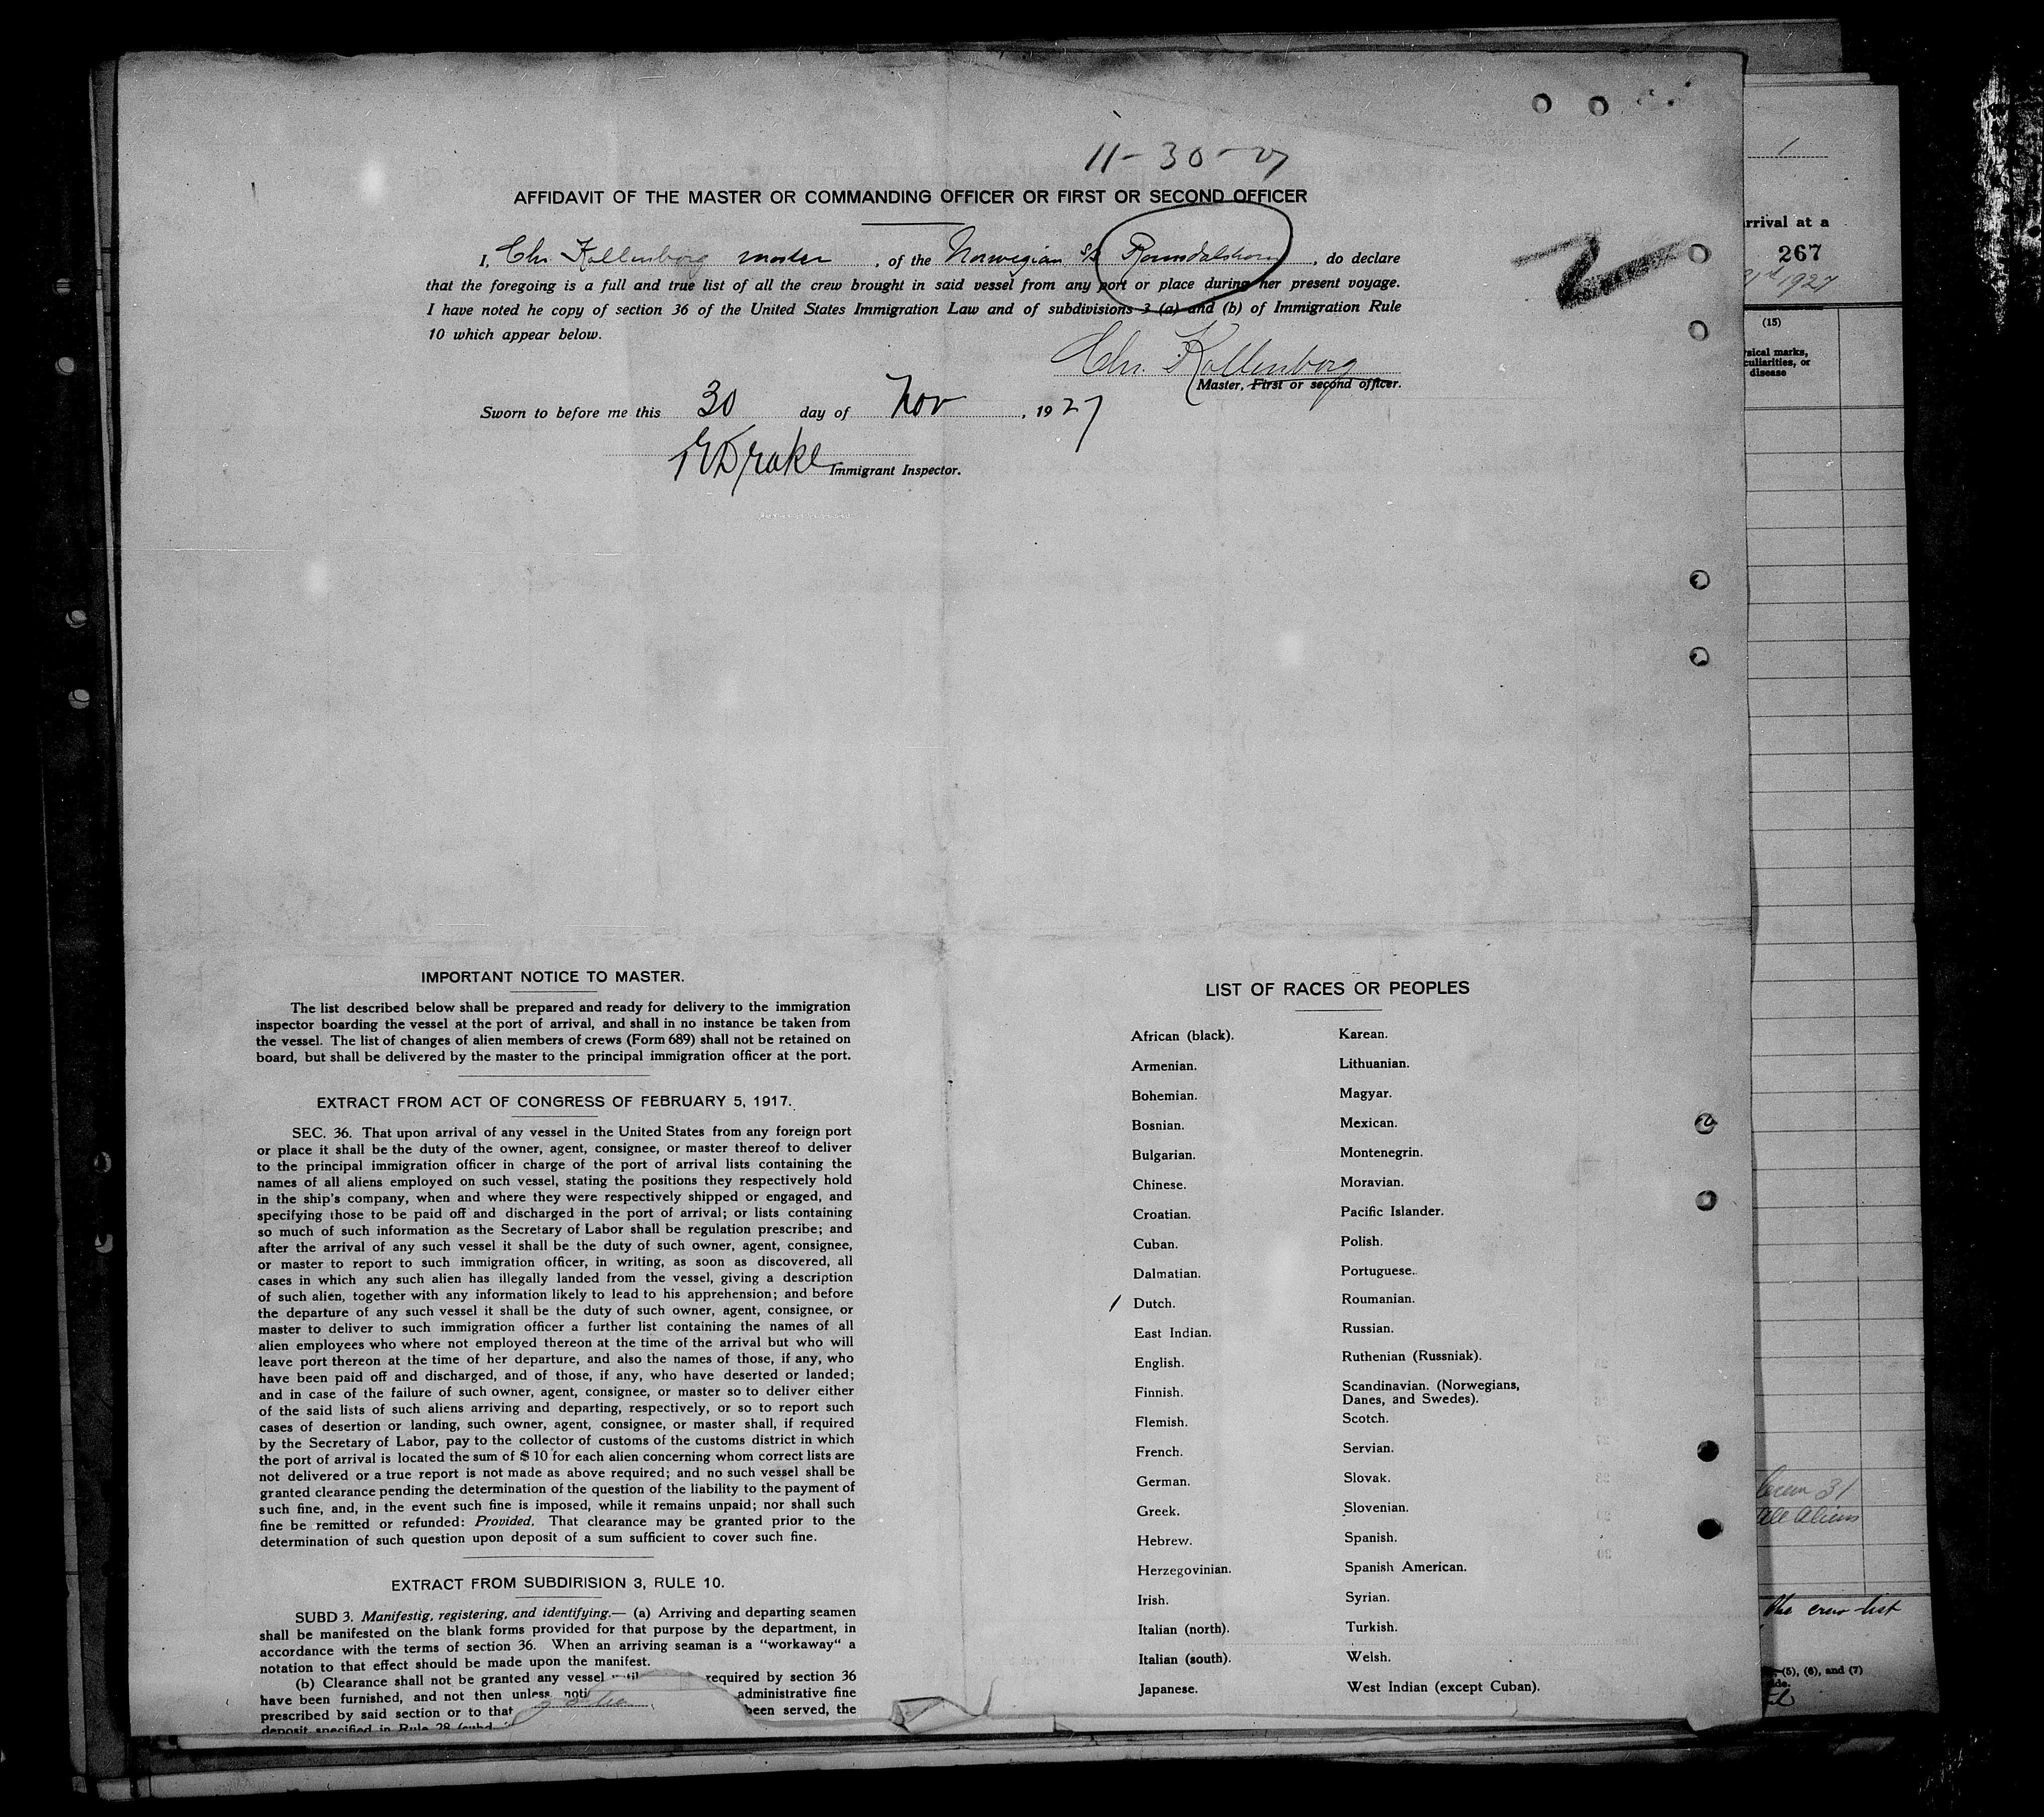 11-30-27
AFFIDAVIT OF THE MASTER OR COMMANDING OFFICER OR FIRST OR SECOND OFFICER
I, Chr Kollenborg master, of the Norwegian S/S Romsdalshorn, do declare
that the foregoing is a full and true list of all the crew brought in said vessel from any port or place during her present voyage.
I have noted he copy of section 36 of the United States Immigration Law and of subdivisions 3 (a) and (b) of Immigration Rule
10 which appear below.
Chr. Kollenborg
Master, First or second officer.
Sworn to before me this 30 day of Nov, 1927
Drake Immigrant Inspector.
IMPORTANT NOTICE TO MASTER.
The list described below shall be prepared and ready for delivery to the immigration
inspector boarding the vessel at the port of arrival, and shall in no instance be taken from
the vessel. The list of changes of alien members of crews (Form 689) shall not be retained on
board, but shall be delivered by the master to the principal immigration officer at the port.
EXTRACT FROM ACT OF CONGRESS OF FEBRUARY 5, 1917.
SEC. 36. That upon arrival of any vessel in the United States from any foreign port
or place it shall be the duty of the owner, agent, consignee, or master thereof to deliver
to the principal immigration officer in charge of the port of arrival lists containing the
names of all aliens employed on such vessel, stating the positions they respectively hold
in the ship's company, when and where they were respectively shipped or engaged, and
specifying those to be paid off and discharged in the port of arrival; or lists containing
so much of such information as the Secretary of Labor shall be regulation prescribe; and
after the arrival of any such vessel it shall be the duty of such owner, agent, consignee,
or master to report to such immigration officer, in writing, as soon as discovered, all
cases in which any such alien has illegally landed from the vessel, giving a description
of such alien, together with any information likely to lead to his apprehension; and before
the departure of any such vessel it shall be the duty of such owner, agent, consignee, or
master to deliver to such immigration officer a further list containing the names of all
alien employees who where not employed thereon at the time of the arrival but who will
leave port thereon at the time of her departure, and also the names of those, if any, who
have been paid off and discharged, and of those, if any, who have deserted or landed;
and in case of the failure of such owner, agent, consignee, or master so to deliver either
of the said lists of such aliens arriving and departing, respectively, or so to report such
cases of desertion or landing, such owner, agent, consignee, or master shall, if required
by the Secretary of Labor, pay to the collector of customs of the customs district in which
the port of arrival is located the sum of $ 10 for each alien concerning whom correct lists are
not delivered or a true report is not made as above required; and no such vessel shall be
granted clearance pending the determination of the question of the liability to the payment of
such fine, and, in the event such fine is imposed, while it remains unpaid; nor shall such
fine be remitted or refunded: Provided. That clearance may be granted prior to the
determination of such question upon deposit of a sum sufficient to cover such fine.
EXTRACT FROM SUBDIRISION 3, RULE 10.
SUBD 3. Manifestig, registering, and identifying.— (a) Arriving and departing seamen
shall be manifested on the blank forms provided for that purpose by the department, in
accordance with the terms of section 36. When an arriving seaman is a "workaway" a
notation to that effect should be made upon the manifest.
(b) Clearance shall not be granted any vessel required by section 36
have been furnished, and not then unless administrative fine
prescribed by said section or to that been served, the
deposit specified in Rule 28 (subd.
LIST OF RACES OR PEOPLES
African (black).
Armenian.
Bohemian.
Bosnian.
Bulgarian.
Chinese.
Croatian.
Cuban.
Dalmatian.
Dutch.
East Indian.
English.
Finnish.
Flemish.
French.
German.
Greek.
Hebrew.
Herzegovinian.
Irish.
Italian (north).
Italian (south).
Japanese.
Karean.
Lithuanian.
Magyar.
Mexican.
Montenegrin.
Moravian.
Pacific Islander.
Polish.
Portuguese.
Roumanian.
Russian.
Ruthenian (Russniak).
Scandinavian. (Norwegians,
Danes, and Swedes).
Scotch.
Servian.
Slovak.
Slovenian.
Spanish.
Spanish American.
Syrian.
Turkish.
Welsh.
West Indian (except Cuban).
1
rrival at a
267
1927
(15)
sical marks,
culiarities, or
disease
Crew 31
All Aliens
the crew list
(5), (6), and (7)